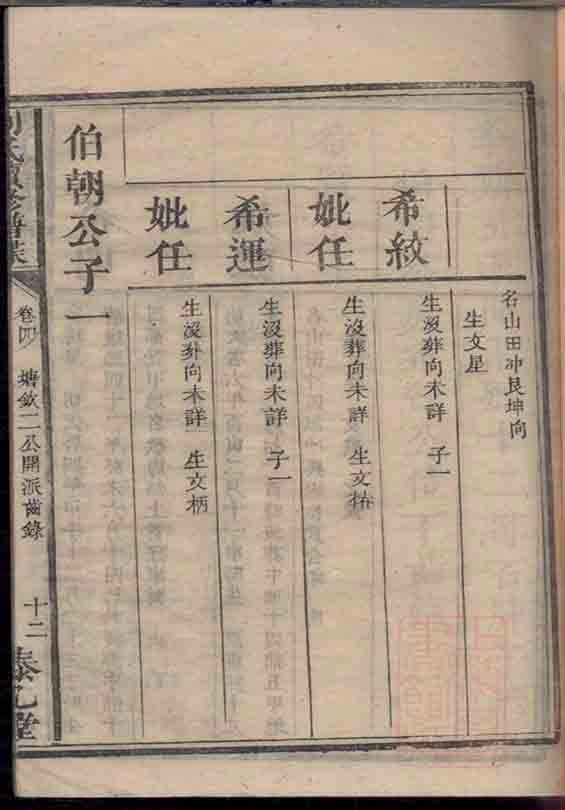 名山田冲艮坤向
生文星
希紋
生沒葬向未詳 子一
妣任
生沒葬向未詳 生文栴
希運
生沒葬向未詳 子一
妣任
生沒葬向未詳 生文柄
伯朝公子一
氏續修譜
卷四 塘欽二公開派齒錄 十二
堂